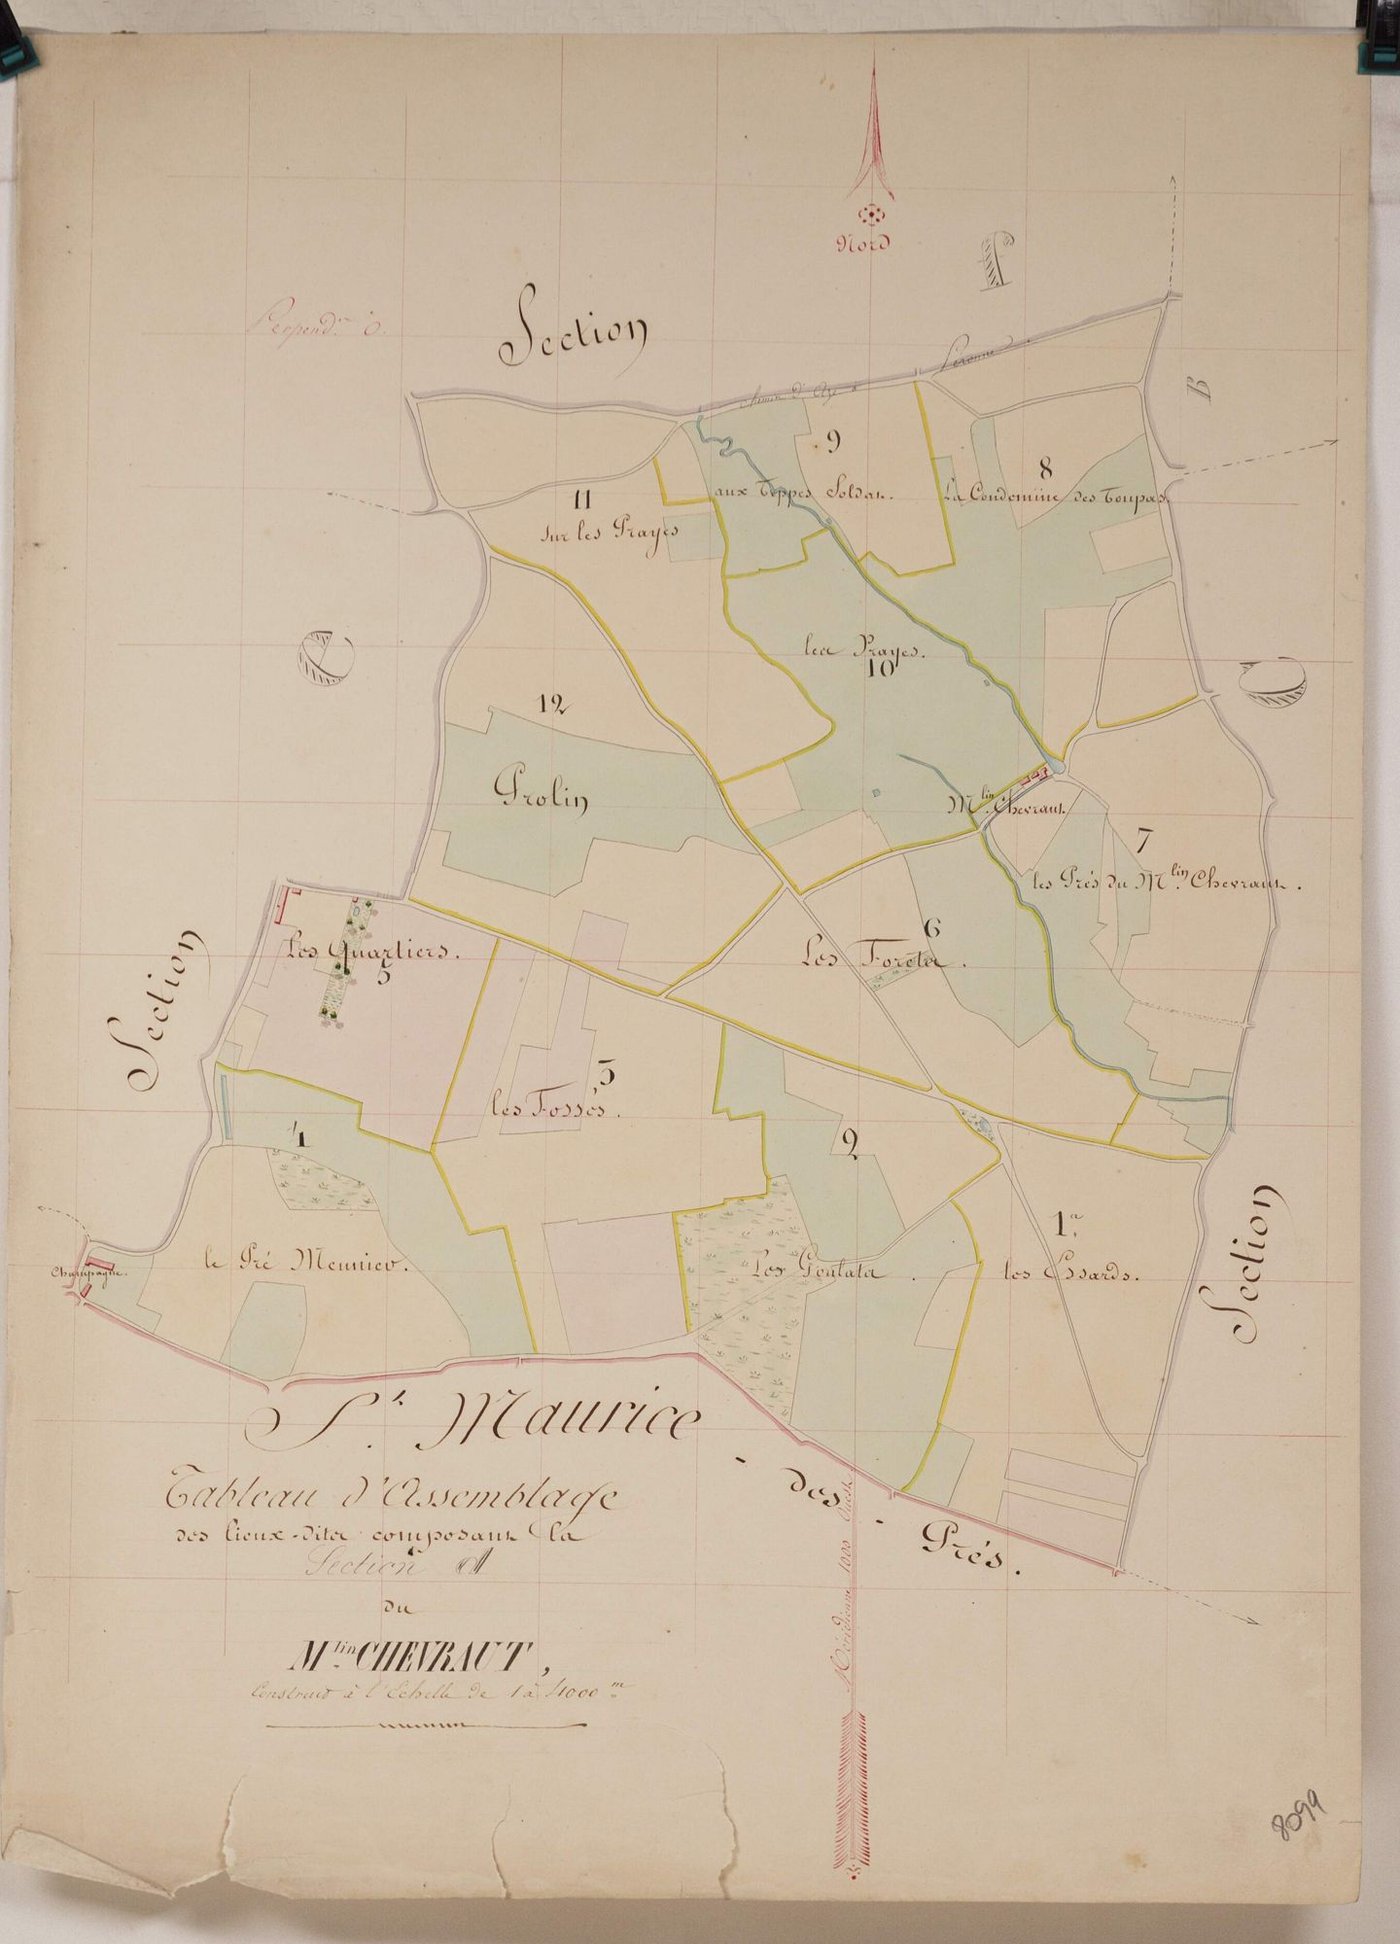 Nord
Section
J
Perpend.re 0.
chemin d'Azé à Peronne
B
9
aux Teppes Soldat.
8
La Condemine des Toupes
11
sur les Prayes
les Prayes.
10
C
C
12
Prolin
M.lin Chevraut
7
les Prés du M.lin Chevraut.
6
Les Forêts.
Les Quartiers.
5
Section
3
les Fossés.
4
2
1.er
le Pré Meunier.
Champagne.
Les Poutats.
les Essards.
Section
St. Maurice - des - Prés.
Tableau d'Assemblage
des lieux-dits composant la
Section A
du
M.lin CHEVRAUT,
Construit à l'Echelle de 1 à 4000 m
Méridienne 1000 Ouest
8099